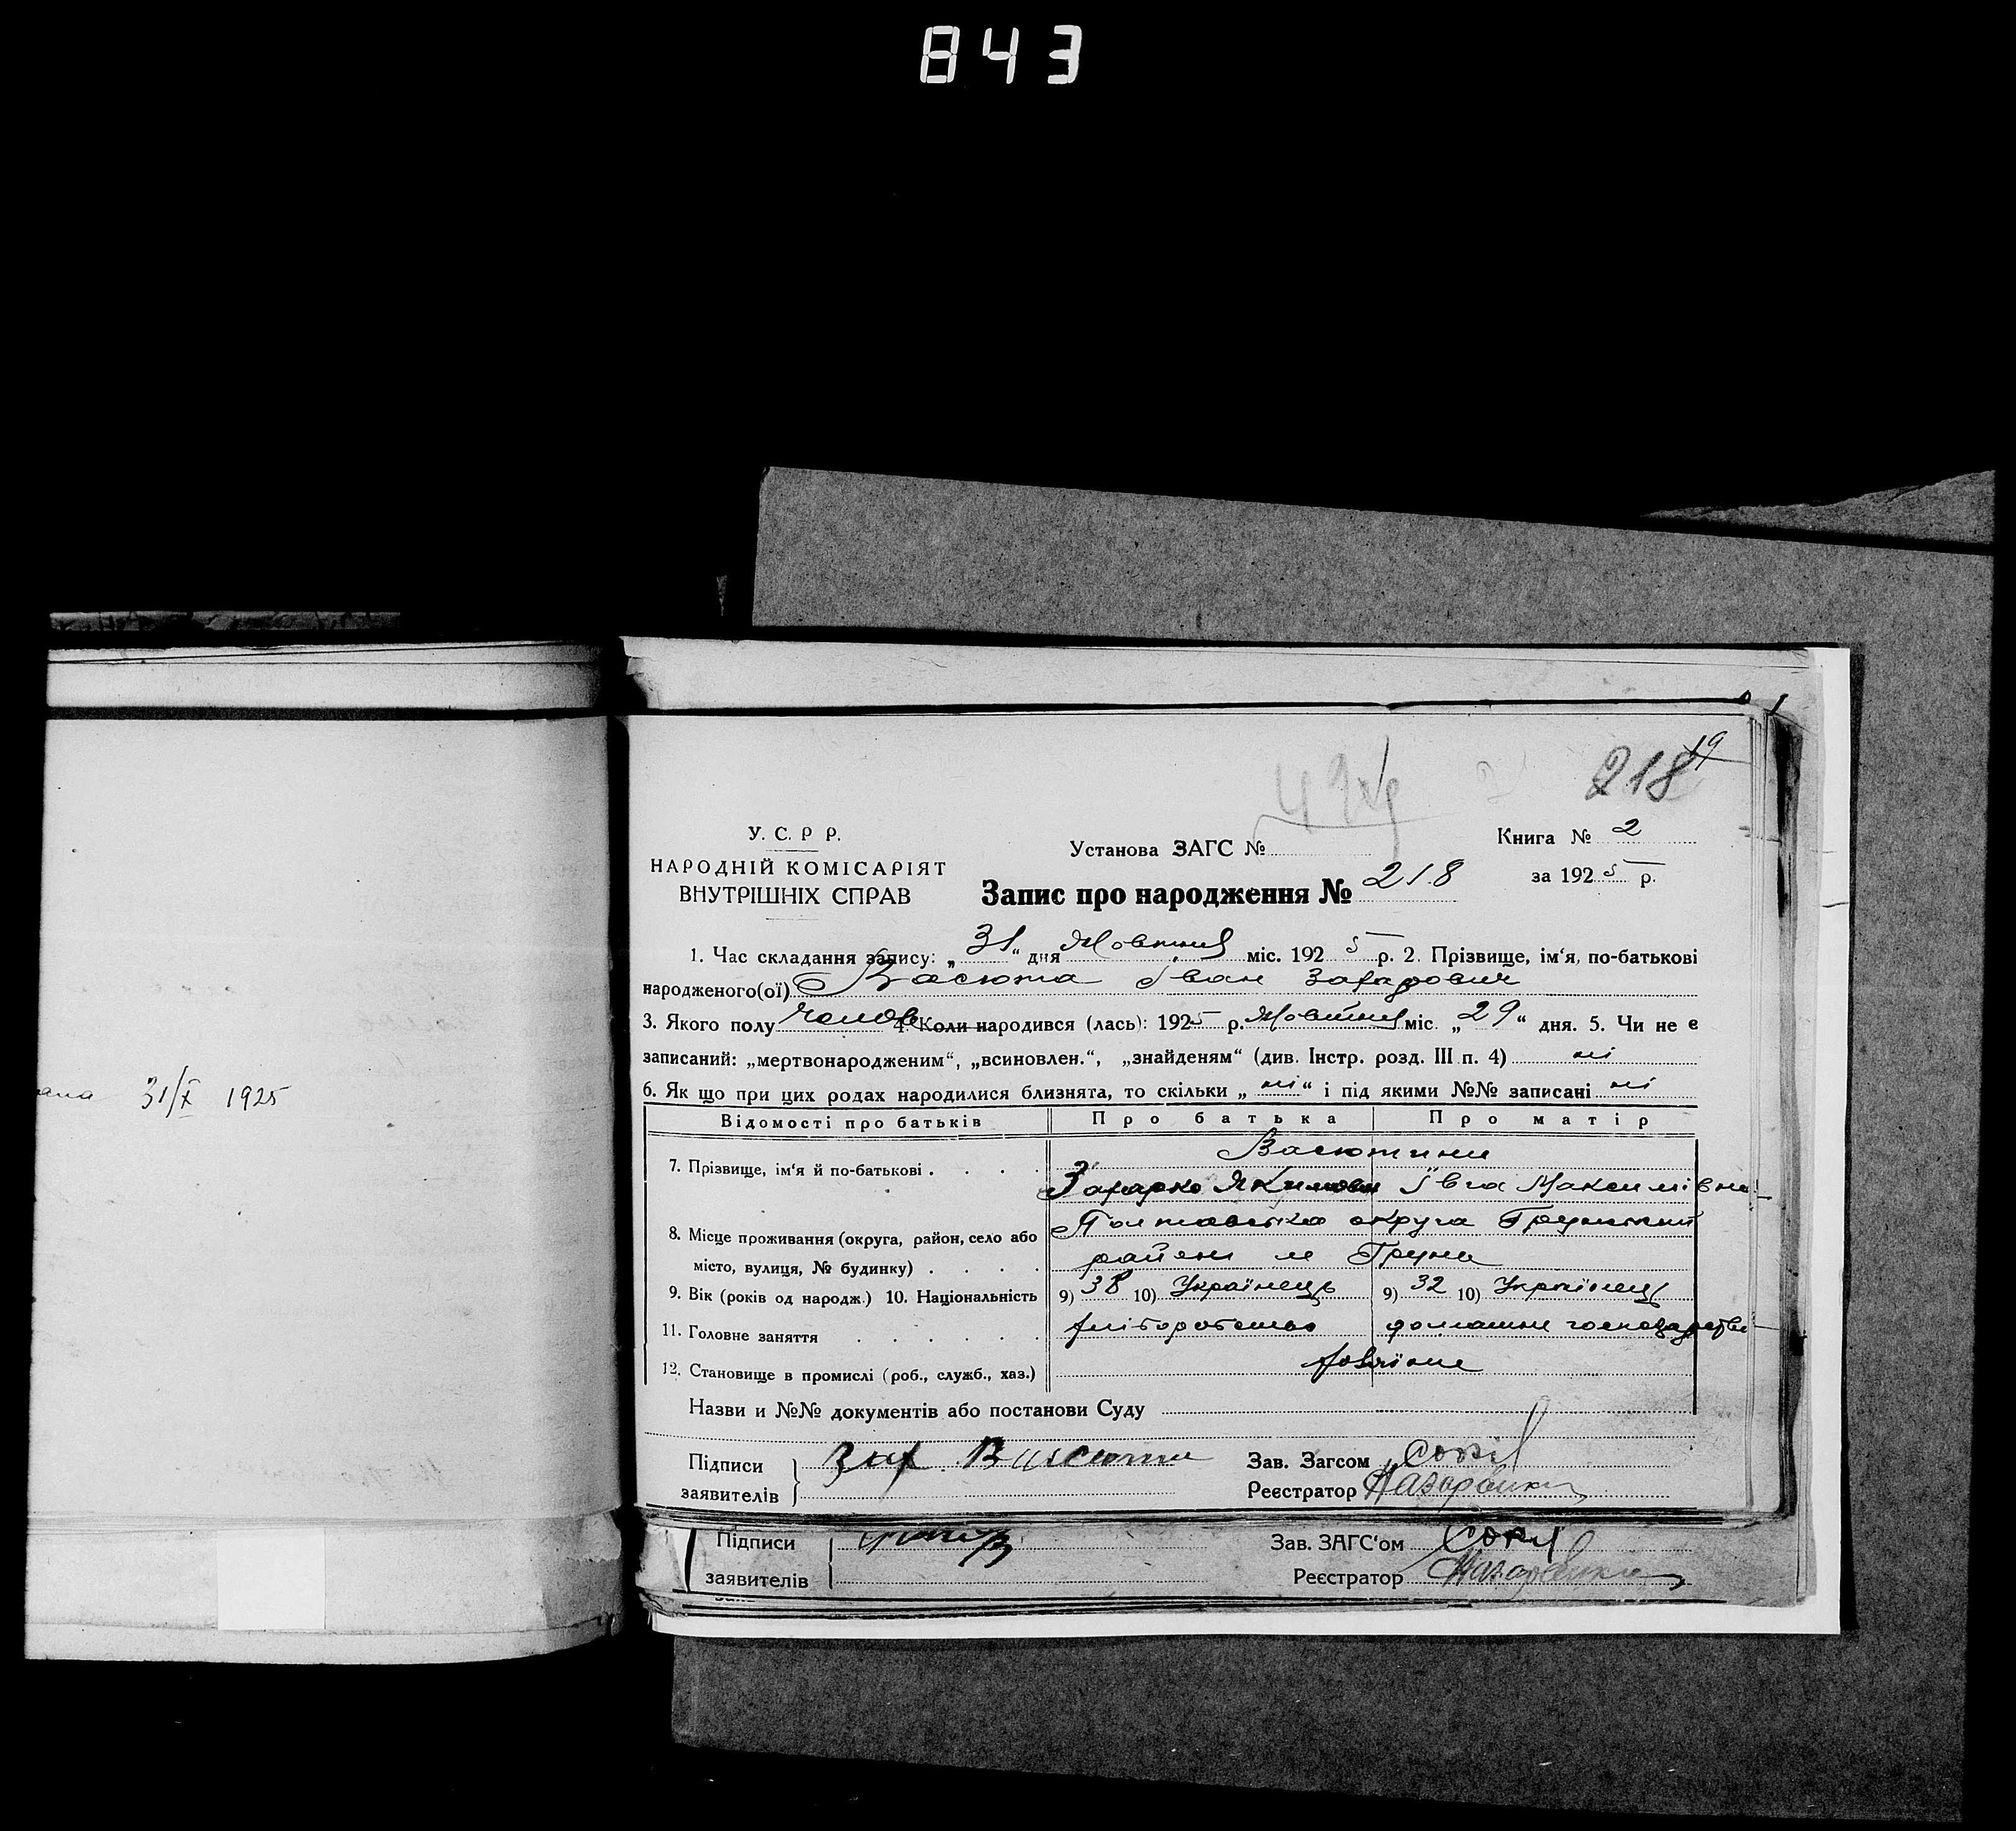 843
31/X 1925
19
218
У. С. Р Р.
НАРОДНІЙ КОМІСАРІЯТ
ВНУТРІШНІХ СПРАВ
Установа ЗАГС №
Книга № 2
за 1925 р.
Запис про народження № 218
1. Час складання запису: „31“ дня Жовтня міс. 1925 р. 2. Прізвище, ім‘я, по-батькові
народженого(ої) Васюта Іван Захарович
3. Якого полу чолов 4. Коли народився (лась): 1925 р. Жовтня міс. „29“ дня. 5. Чи не є
записаний: „мертвонародженим“, „всиновлен.“, „знайденям“ (див. Інстр. розд. III п. 4) ні
6. Як що при цих родах народилися близнята, то скільки „ні“ і під якими №№ записані ні
Відомості про батьків Про батька Про матір
7. Прізвище, ім‘я й по-батькові . . . . Васютини
Захарко Якимови Івга Максимівна
8. Місце проживання (округа, район, село або Полтавська округа Грунський
місто, вулиця, № будинку) . . . . район м Груна
9. Вік (років од народж.) 10. Національність 9) 38 10) Українець 9) 32 10) Українец
11. Головне заняття . . . . . . хліборобство домашнє господарство
12. Становище в промислі (роб., служб., хаз.)
Назви и №№ документів або постанови Суду
Підписи Зах Васюта Зав. Загсом Сокіл
заявителів Реєстратор
Підписи Зав. ЗАГС‘ом Сокіл
заявителів Реєстратор